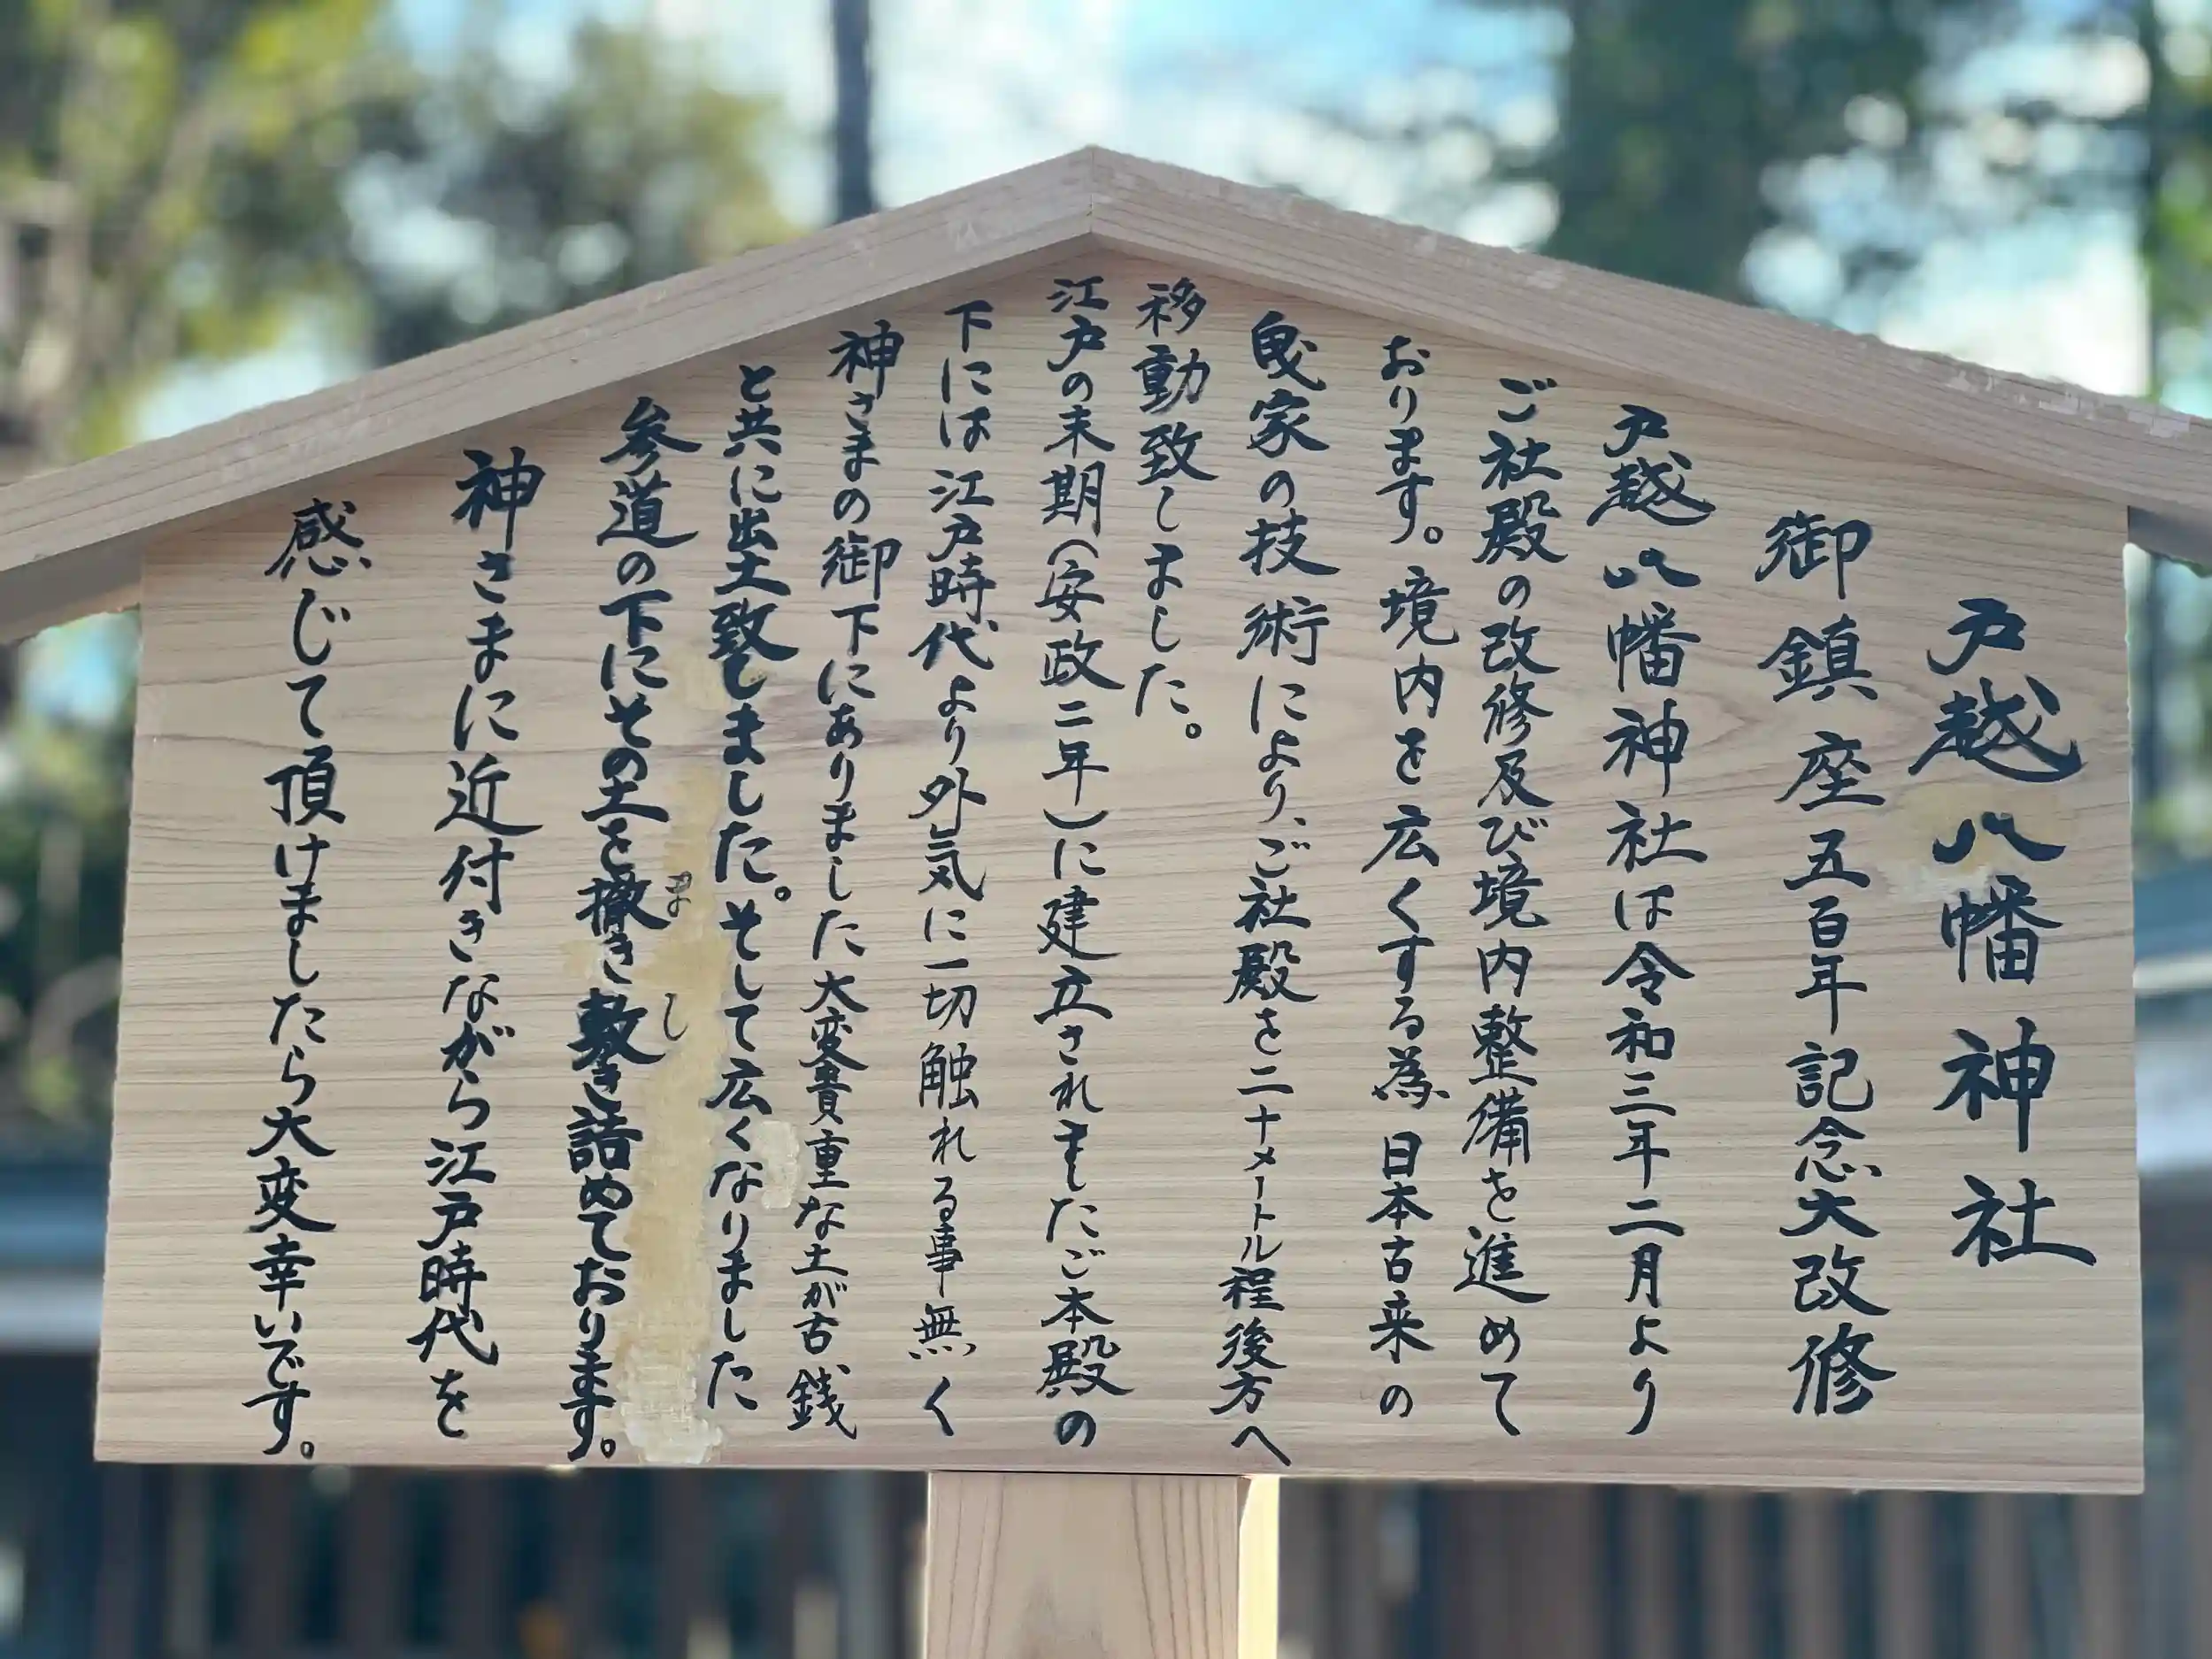 戸越八幡神社
御鎮座五百年記念大改修
戸越八幡神社は令和三年二月より
ご社殿の改修及び境内整備を進めて
おります。境内を広くする為日本古来の
曳家の技術により、ご社殿を二十メートル程後方へ
移動致しました。
江戸の末期(安政二年)に建立されましたご本殿の
下には江戸時代より外気に一切触れる事無く
神さまの御下にありました大変貴重な土が古銭
と共に出土致しました。そして広くなりました
参道の下にその土を撒き敷き詰めております。
ま
し
神さまに近付きながら江戸時代を
感じて頂けましたら大変幸いです。